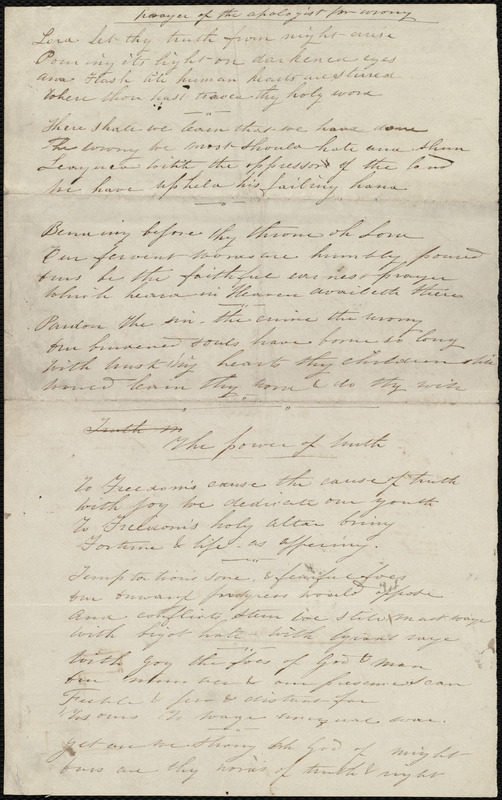 Prayer of the apologist for wrong
Lord let thy truth from night arise
Pouring its light on darkened eyes
and flash till human hearts are stirred
Where thou hast traced thy holy word
There shall we learn that we have done
The wrong we most should hate and shun
Leagued with the oppressors of the land
We have upheld his failing hand
Bending before thy throne oh Lord
Our fervent words are humbly poured
Ours be the faithful earnest prayer
Which heard in Heaven availeth there
Pardon the sin the crime the wrong
Our burdened souls have borne so long
With trusting hearts thy children still
Would learn thy word & do thy will
Truth
The power of truth
To Freedom's cause the cause of truth
With joy we dedicate our youth
To Freedom's holy altar bring
Fortune & life as offering.
Temptations sore & fearful foes
Our onward progress would oppose
And conflicts stern we still must wage
With bigot hate with tyrant rage
With joy the foes of God & man
Our numbers & our presence scan
Feeble & few & distant far
'Tis ours to wage unequal war.
Yet are we strong oh God of might
Ours are thy words of truth & right